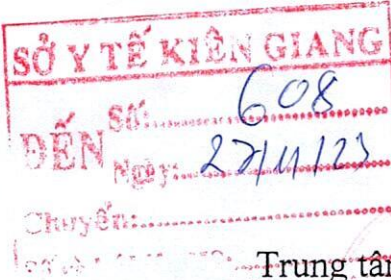 SỞ Y TẾ KIÊN GIANG
ĐẾN
Số: 608
Ngày: 27/11/23
Chuyển:
Trung tâ